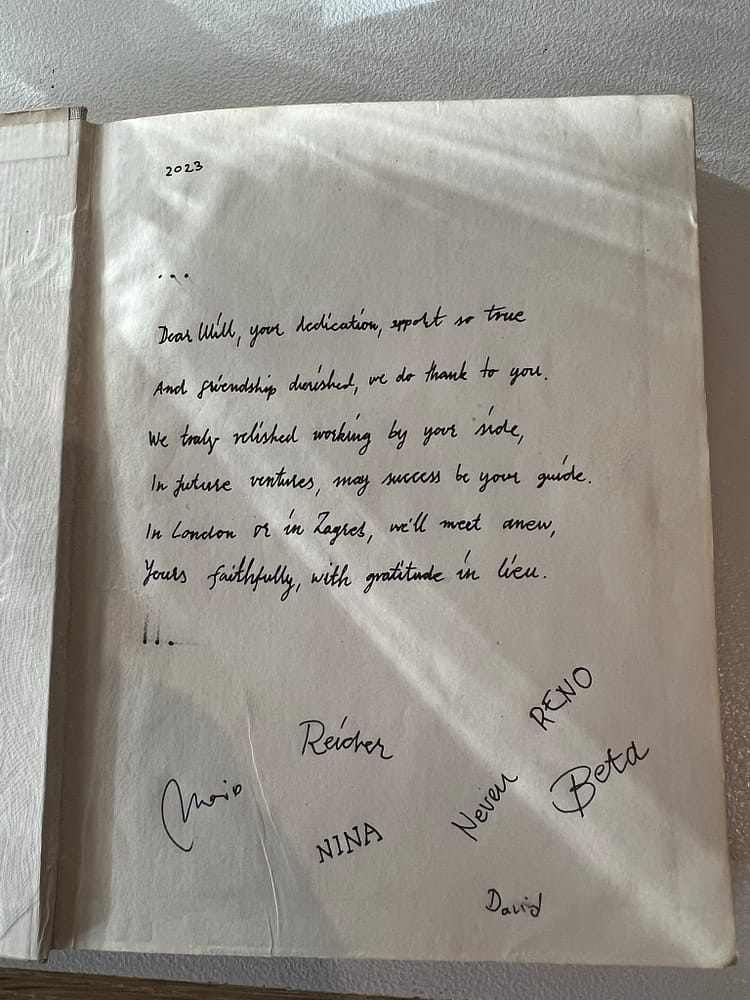 2023
...
Dear Will, your dedication, support so true
And friendship cherished, we do thank to you.
We truly relished working by your side,
In future ventures, may success be your guide.
In London or in Zagreb, we'll meet anew,
Yours faithfully, with gratitude in lieu.
RENO
Reicher
Beta
Neven
NINA
David